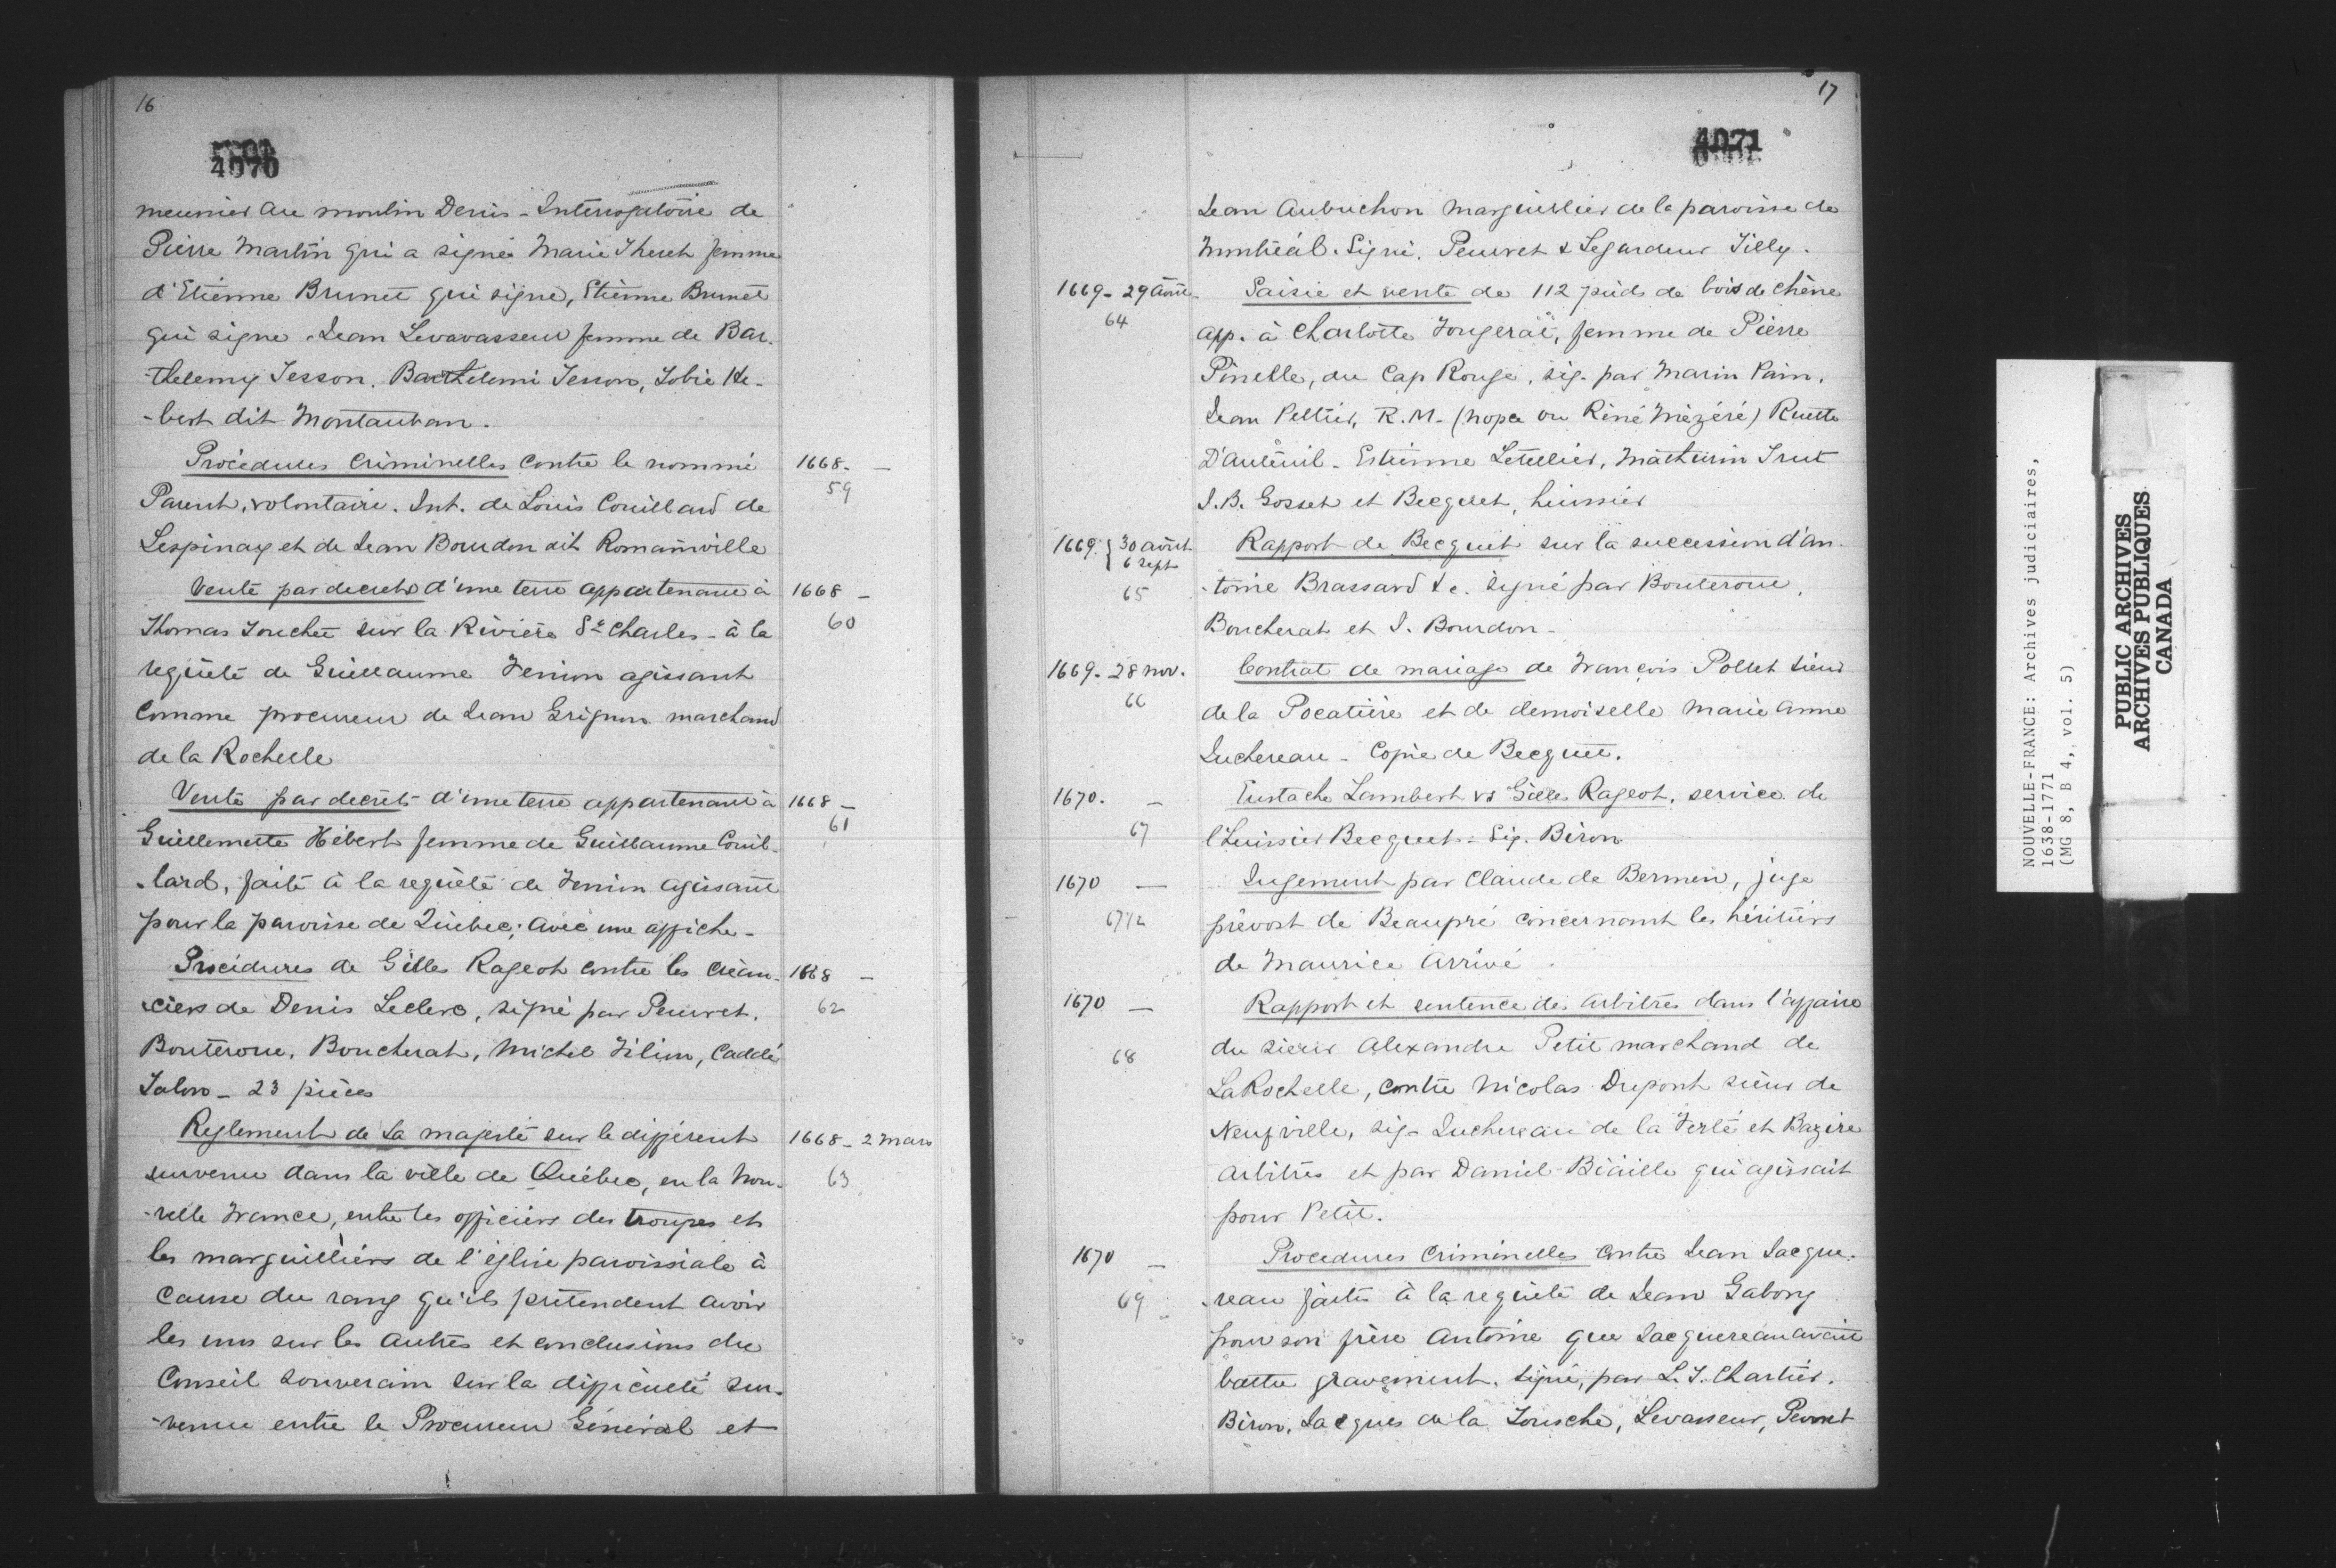 16
4070
meunier au moulin Denis - Interrogatoire de
Pierre Martin qui a signé Marie Theret femme
d'Etienne Brunet qui signe, Etienne Brunet
qui signe - Jean Levavasseur femme de Bar-
-thelemy Tesson, Barthelemi Tesson, Tobie He-
-bert dit Montauban.
Procédures Criminelles contre le nommé 1668. -
Parent, volontaire. Int. de Louis Couillard de 59
Lespinay et de Jean Bourdon dit Romainville
Vente par decret d'une terre appartenant à 1668 -
Thomas Touchet sur la Rivière St Charles - à la 60
requête de Guillaume Fenion agissant
Comme procureur de Jean Grignon marchand
de la Rochelle
Vente par decret d'une terre appartenant à 1668 -
Guillemette Hébert femme de Guillaume Couil- 61
-lard, faite à la requête de Fenion agissant
pour la paroisse de Québec; avec une affiche -
Procédures de Gilles Rageot contre les créan- 1668 -
-ciers de Denis Leclerc, signé par Peuvret, 62
Bouteroue, Boucherat, Michel Filion, Caddé
Talon - 23 pièces
Reglement de Sa majesté sur le différent 1668 - 2 Mars
survenu dans la ville de Québec, en la Nou- 63
-velle France, entre les officiers des troupes et
les marguilliers de l'église paroissiale à
Cause du rang qu'ils prétendent avoir
les uns sur les autres et conclusions du
Conseil souverain sur la difficulté sur-
-venue entre le Procureur Général et
17
4071
Jean Aubuchon Marguillier de la paroisse de
Montréal. Signé, Peuvret & Legardeur Tilly.
1669 - 29 Août. Saisie et vente de 112 pieds de bois de chêne
64 app. à Charlotte Fougerat, femme de Pierre
Pinelle, du Cap Rouge, sig. par Marin Pain,
Jean Peltier, R. M. - (nopce ou René Mézéré) Ruette
D'auteuil - Estienne Letellier, Mathurin Trut
J. B. Gosset et Becquet, huissier
1669. { 30 août 6 sept Rapport de Becquet sur la succession d'An-
65 -toine Brassard &c. signé par Bouteroue,
Boucherat et J. Bourdon -
1669 - 28 nov. Contrat de mariage de François Pollet sieur
66 de la Pocatière et de demoiselle Marie Anne
Juchereau - Copie de Becquet.
1670. - Eustache Lambert vs Gilles Rageot, service de
67 l'huissier Becquet - Sig. Biron
1670 - Jugement par Claude de Bermen, juge
67 1/2 prévost de Beaupré concernant les héritiers
de Maurice Arrivé.
1670 - Rapport et sentence des Arbitres dans l'affaire
68 du sieur Alexandre Petit marchand de
La Rochelle, contre Nicolas Dupont sieur de
Neufville, sig - Juchereau de la Ferté et Bazire
arbitres et par Daniel Biaille qui agissait
pour Petit.
1670 - Procedures Criminelles contre Jean Jacque-
69 -reau faites à la requête de Jean Gabory
pour son frère Antoine que Jacquereau avait
battu gravement. Signé, par L. T. Chartier,
Biron, Jacques de la Tousche, Levasseur, Peuvret
NOUVELLE-FRANCE: Archives judiciaires,
1638-1771
(MG 8, B 4, vol. 5)
PUBLIC ARCHIVES
ARCHIVES PUBLIQUES
CANADA